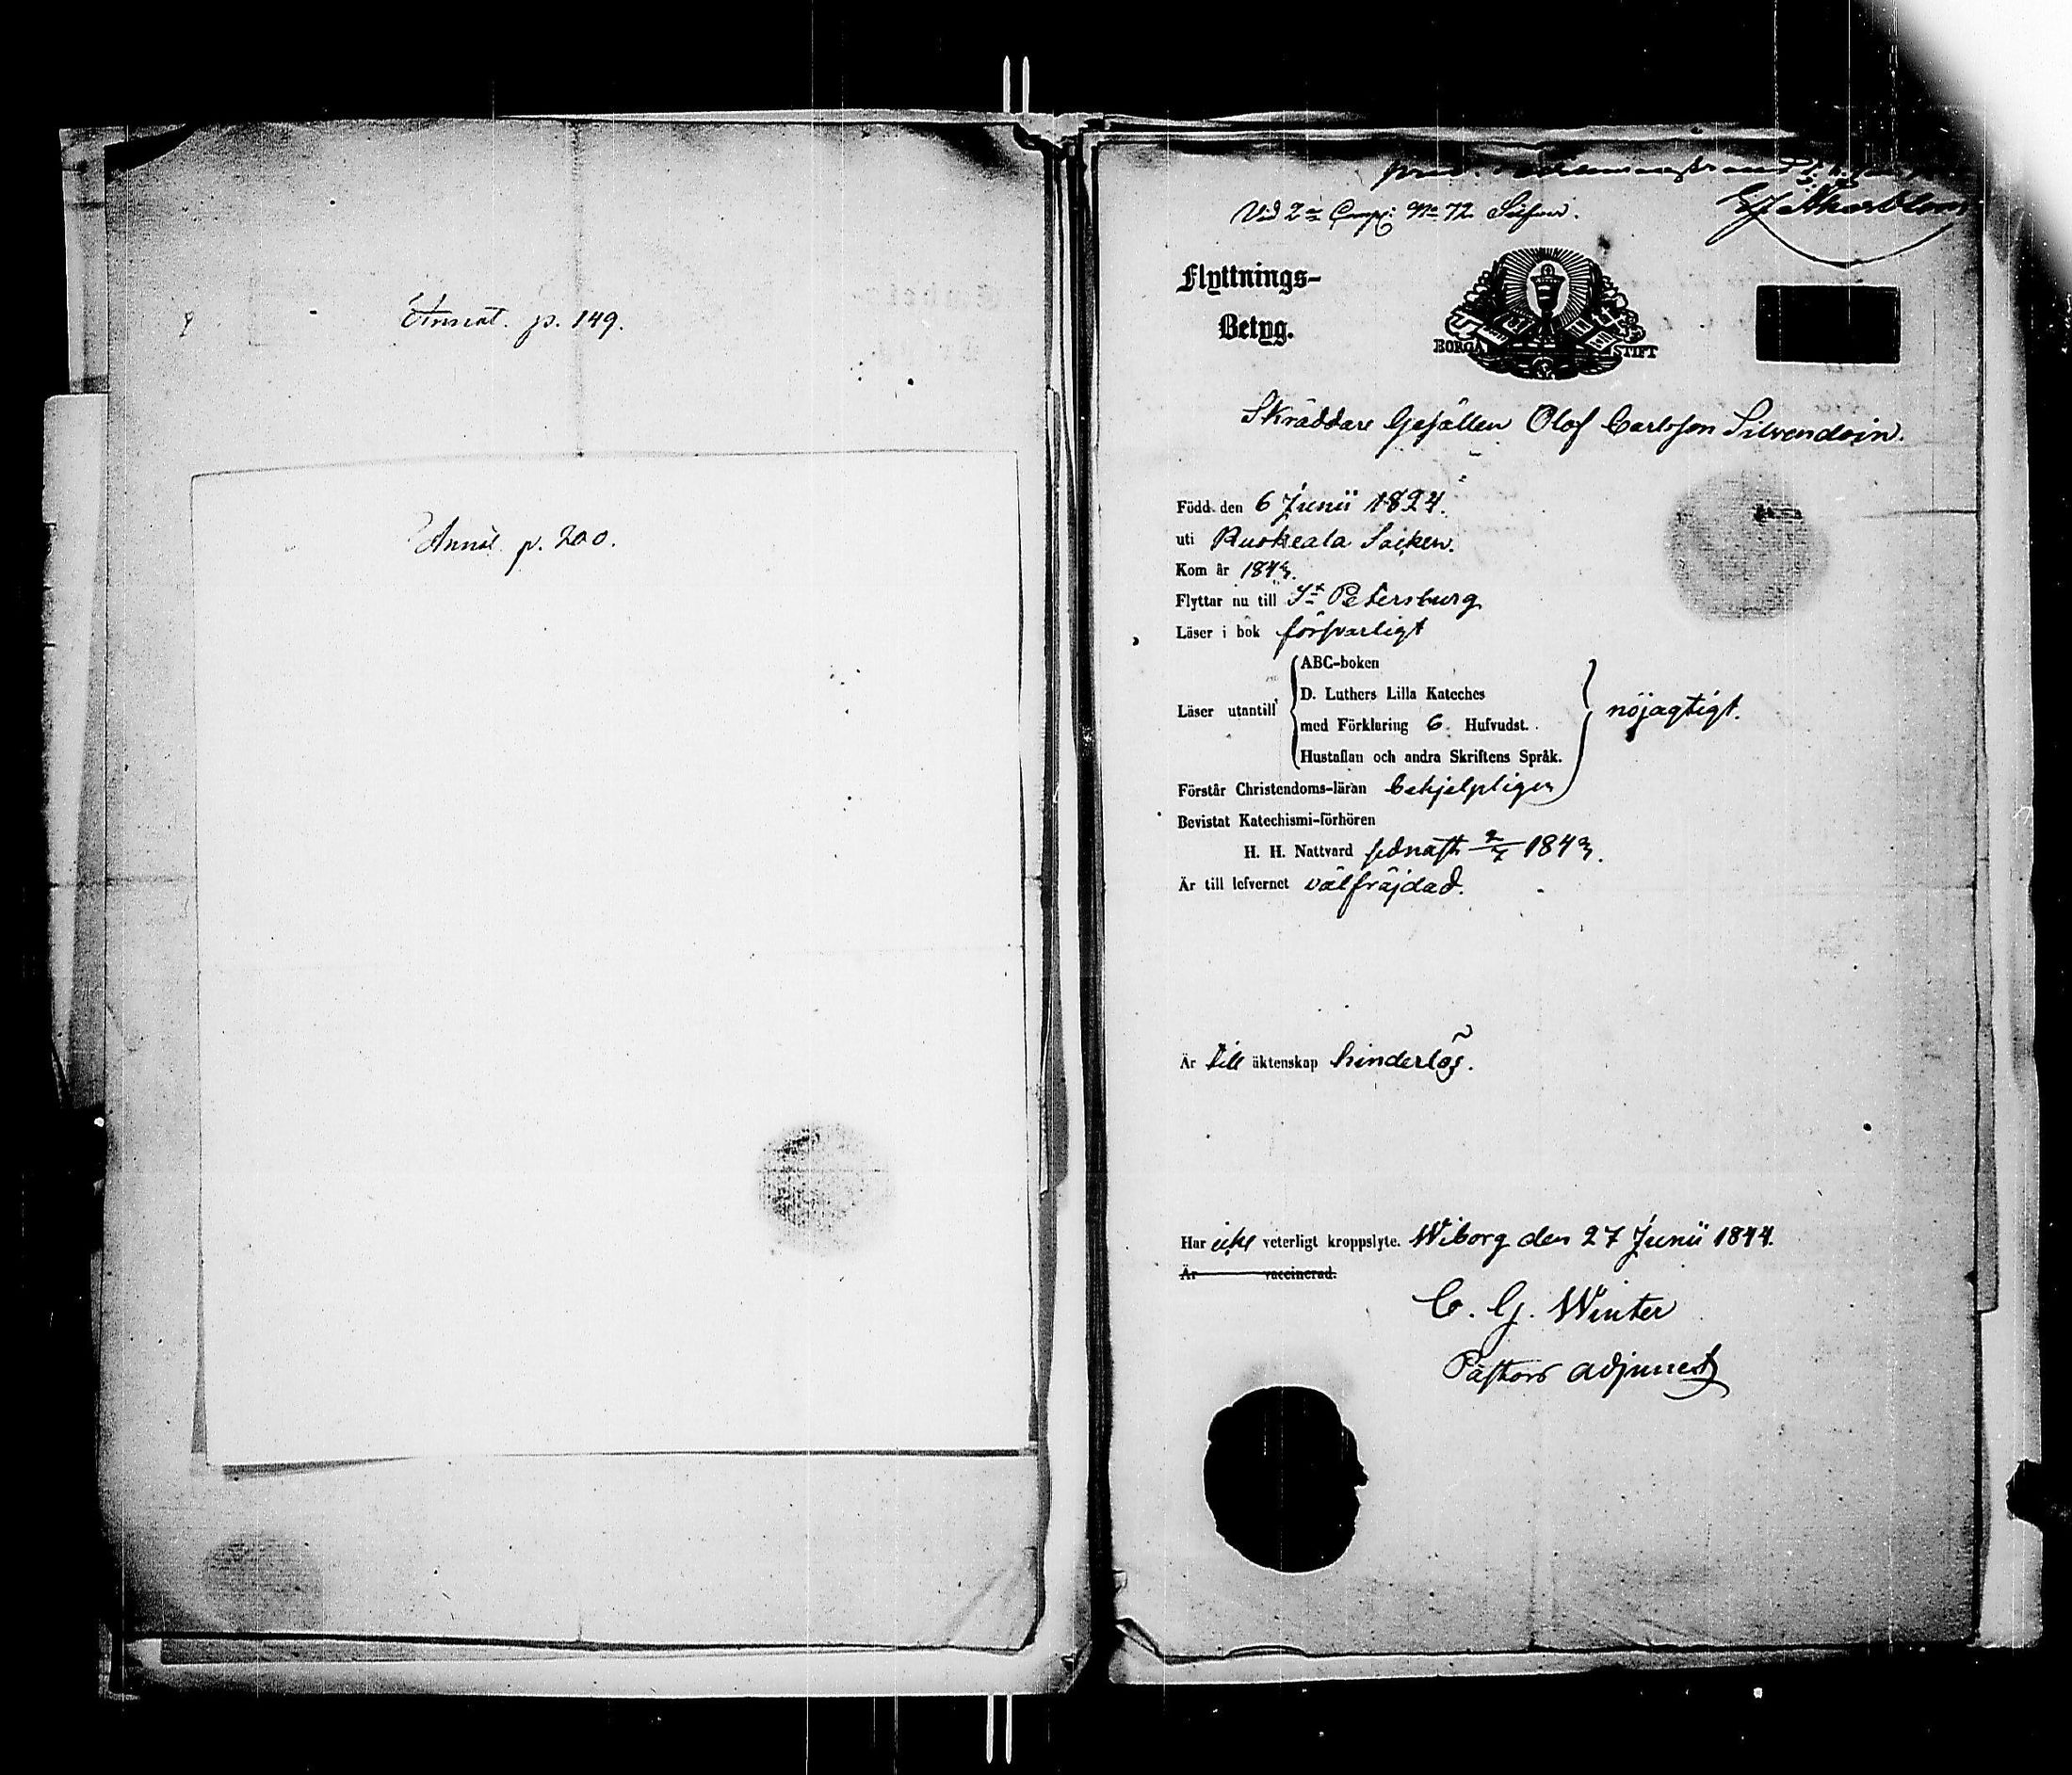 Annot. p. 149.
Annot. p. 200.
Vid 2:a Comp: No 72
Flyttnings-
Betyg.
BORGÅ STIFT
Skräddare Gesällen Olof Carlsson Silvendoin.
Född den 6 Junii 1824.
uti Ruskeala Socken.
Kom år 1843.
Flyttar nu till St Petersburg
Läser i bok försvarligt
ABC-boken
D. Luthers Lilla Kateches
Läser utantill
med Förklaring 6 Hufvudst.
Hustaflan och andra Skriftens Språk.
nöjagtigt.
Förstår Christendoms-läran behjelpligen
Bevistat Katechismi-förhören
H. H. Nattvard sednast 2/7 1843.
Är till lefvernet välfräjdad.
Är till äktenskap hinderlös.
Har icke veterligt kroppslyte. Wiborg den 27 Junii 1844.
Är vaccinerad.
C. G. Winter
Pastors adjunct